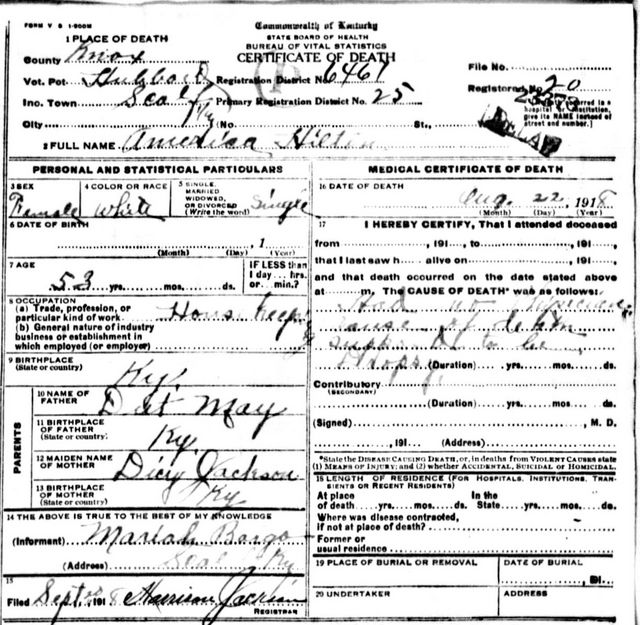 FORM V S 1-900M
Commonwealth of Kentucky
STATE BOARD OF HEALTH
BUREAU OF VITAL STATISTICS
CERTIFICATE OF DEATH
1 PLACE OF DEATH
County Knox
Vot. Pct. Hubbard Registration District No. 6461
File No.
Inc. Town Primary Registration District No. 25
Registered No. 20
City (No. St.,
give its NAME instead of
street and number.]
2 FULL NAME America Hilton
PERSONAL AND STATISTICAL PARTICULARS
3 SEX
Female
4 COLOR OR RACE
White
5 SINGLE,
MARRIED
WIDOWED,
OR DIVORCED
(Write the word)
Single
6 DATE OF BIRTH
, 1
(Month) (Day) (Year)
7 AGE
53 yrs. mos. ds.
IF LESS than
1 day... hrs.
or... min.?
8 OCCUPATION
(a) Trade, profession, or
particular kind of work
(b) General nature of industry
business or establishment in
which employed (or employer)
9 BIRTHPLACE
(State or country)
Ky.
PARENTS
10 NAME OF
FATHER
May
11 BIRTHPLACE
OF FATHER
(State or country)
Ky.
12 MAIDEN NAME
OF MOTHER
Dicy Jackson
13 BIRTHPLACE
OF MOTHER
(State or country)
Ky
14 THE ABOVE IS TRUE TO THE BEST OF MY KNOWLEDGE
(Informent) Mariah Bargo
(Address) Ky
15
Filed Sept , 191 8 Harrison Jackson
REGISTRAR
MEDICAL CERTIFICATE OF DEATH
16 DATE OF DEATH
Aug. 22, 1918
(Month) (Day) (Year)
17 I HEREBY CERTIFY, That I attended deceased
from , 191 , to , 191 ,
that I last saw h alive on , 191 ,
and that death occurred on the date stated above
at m. The CAUSE OF DEATH* was as follows:
Had no Physician
cause of death
to be
(Duration) yrs. mos. ds.
Contributory
(SECONDARY)
(Duration) yrs. mos. ds.
(Signed) , M. D.
, 191 (Address)
*State the DISEASE CAUSING DEATH, or, in deaths from VIOLENT CAUSES state
(1) MEANS OF INJURY; and (2) whether ACCIDENTAL, SUICIDAL or HOMICIDAL.
18 LENGTH OF RESIDENCE (FOR HOSPITALS, INSTITUTIONS, TRAN-
SIENTS OR RECENT RESIDENTS)
At place In the
of death yrs. mos. ds. State yrs. mos. ds.
Where was disease contracted,
if not at place of death?
Former or
usual residence
19 PLACE OF BURIAL OR REMOVAL
DATE OF BURIAL
, 191
20 UNDERTAKER
ADDRESS